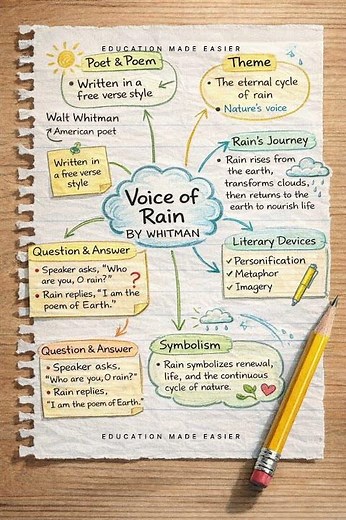 EDUCATION MADE EASIER
Poet & Poem
• Written in a
free verse style
Walt Whitman
American poet
Written in
a free verse
style
Theme
• The eternal cycle
of rain
• Nature's voice
Rain's Journey
• Rain rises from
the earth,
transforms clouds,
then returns to the
earth to nourish life
Voice of
Rain
BY WHITMAN
Question & Answer
• Speaker asks, "Who
are you, O rain?"
?
• Rain replies, "I am the
poem of Earth."
Literary Devices
✓ Personification
✓ Metaphor
✓ Imagery
Question & Answer
• Speaker asks,
"Who are you, O rain?"
• Rain replies,
"I am the poem of Earth."
Symbolism
• Rain symbolizes renewal,
life, and the continuous
cycle of nature.
EDUCATION MADE EASIER